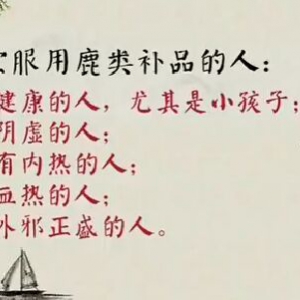 服用鹿类补品的人：
健康的人，尤其是小孩子；
阴虚的人；
有内热的人；
血热的人；
外邪正盛的人。